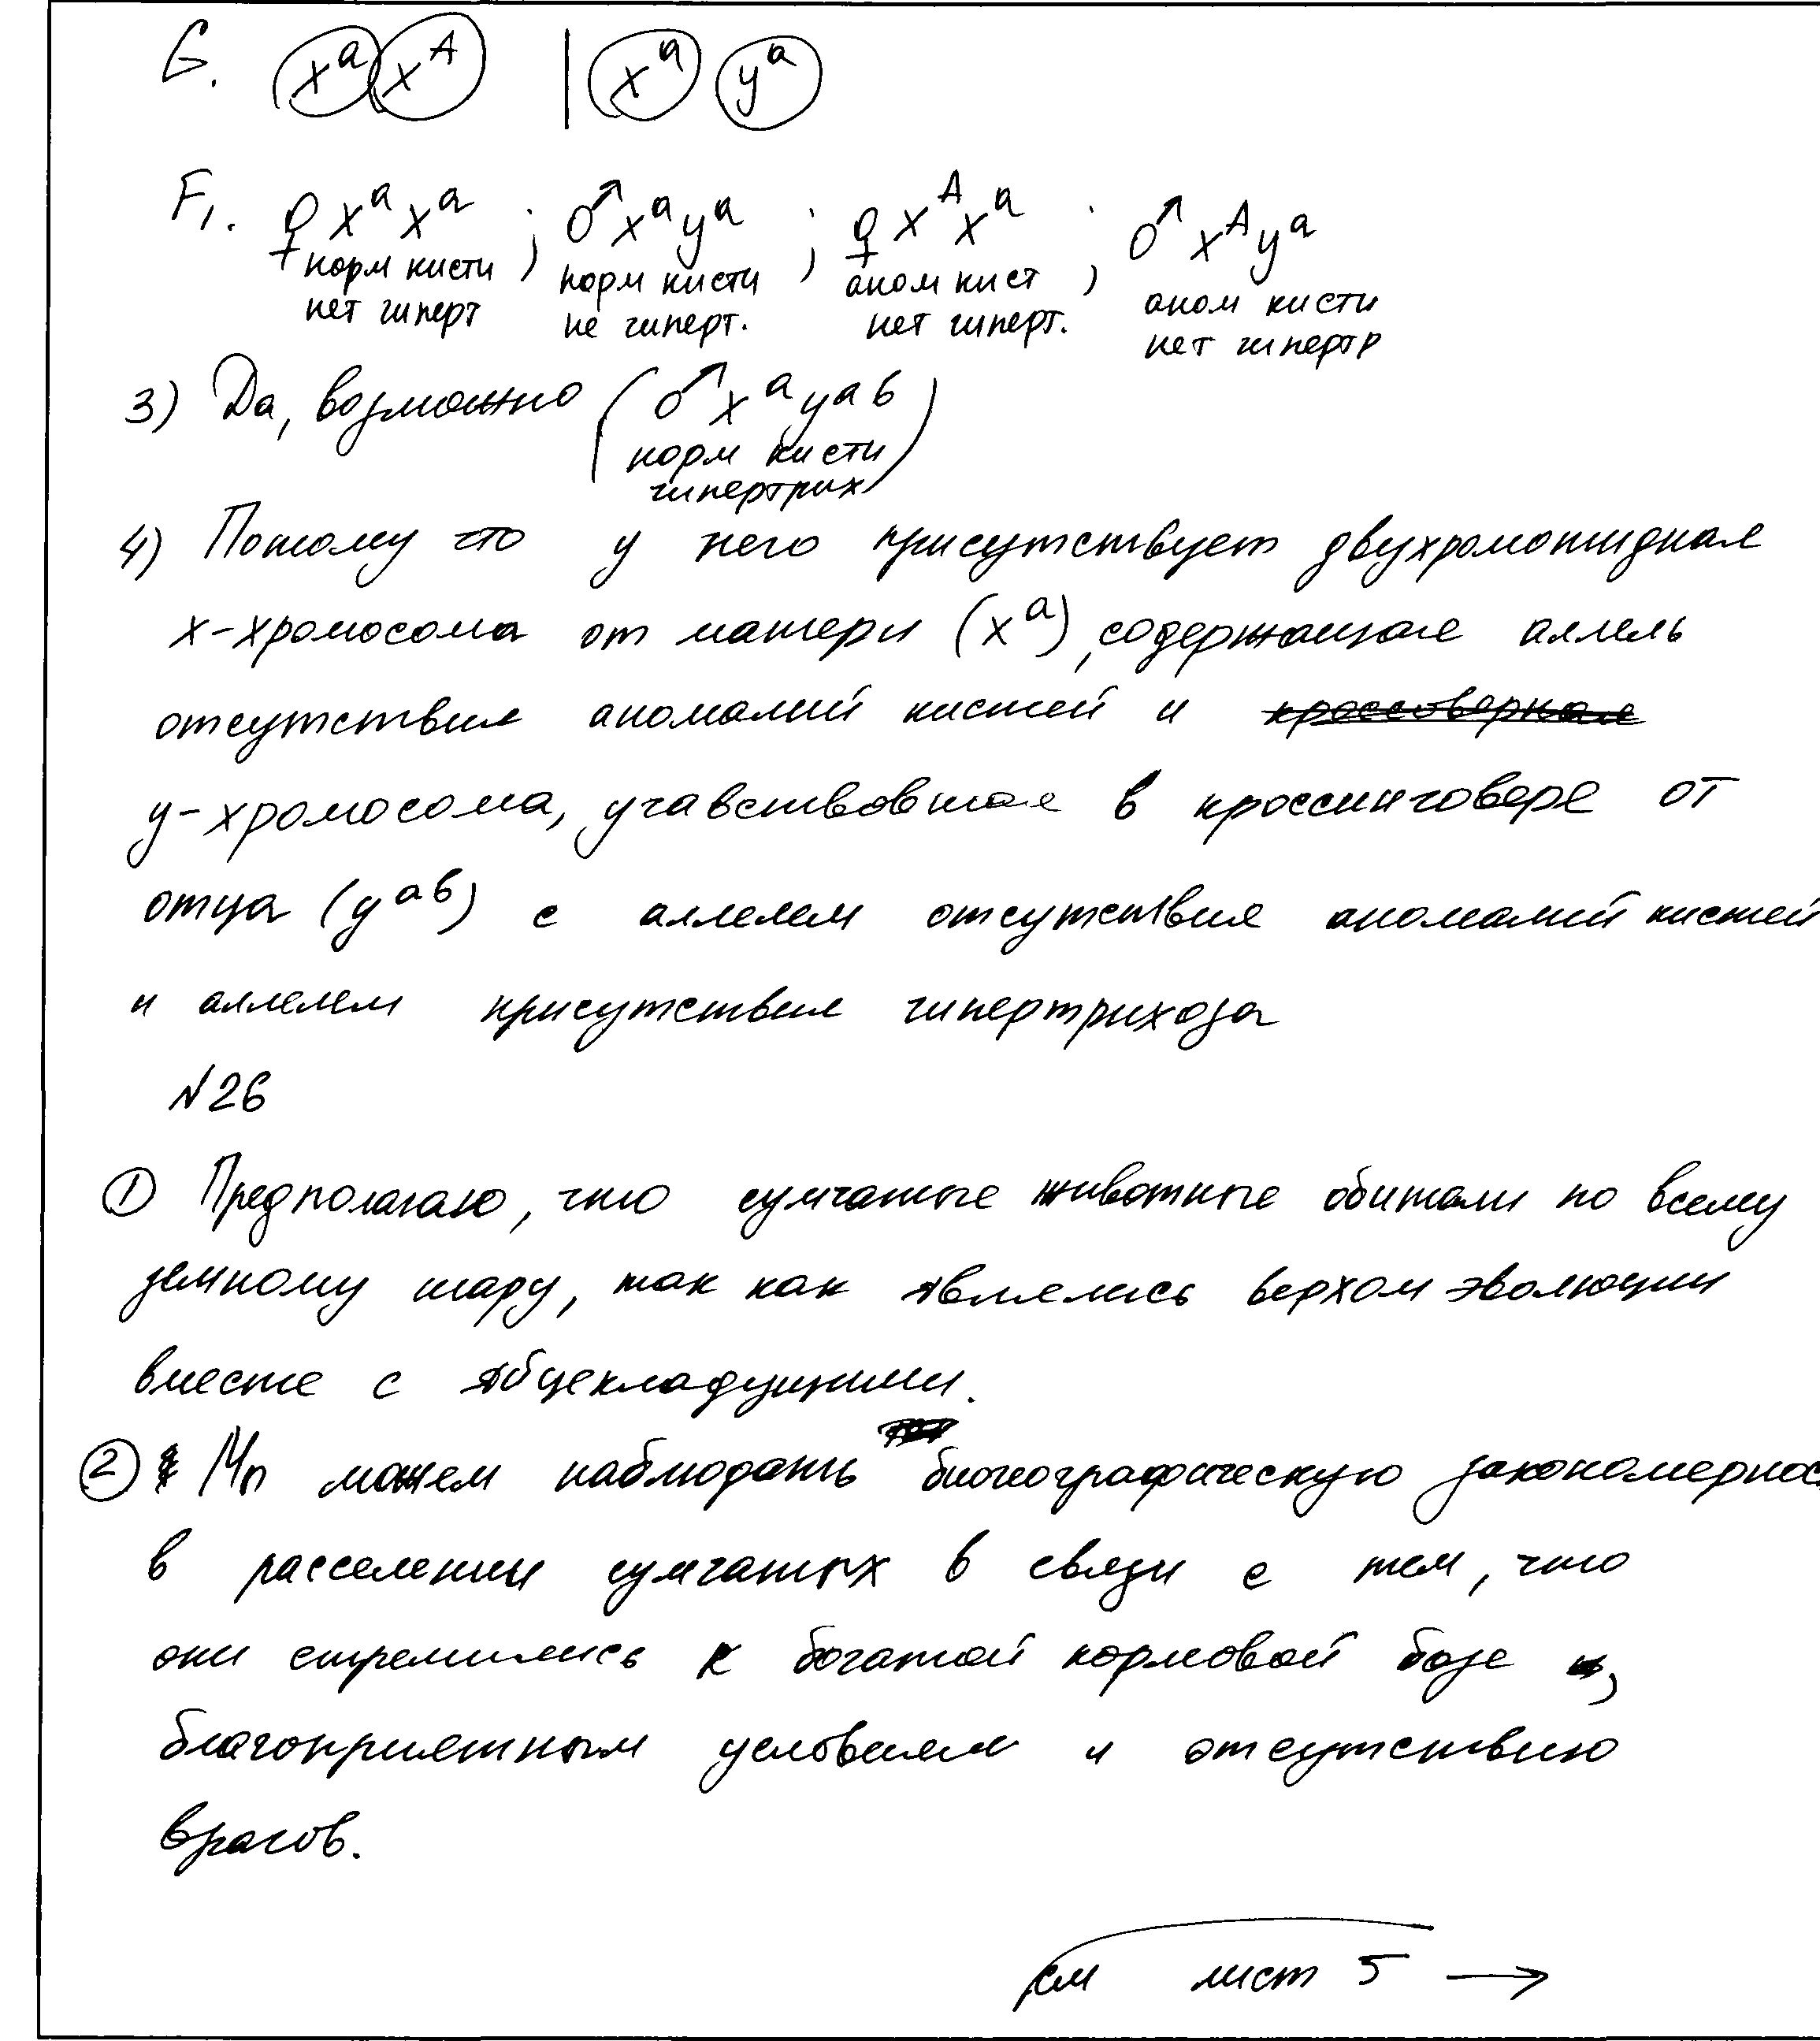 G. xᵃ xᴬ | xᵃ yᵃ
F₁. ♀ xᵃxᵃ ; ♂ xᵃyᵃ ; ♀ xᴬxᵃ ; ♂ xᴬyᵃ
норм кисти норм кисти аном кист аном кисти
нет гиперт не гиперт. нет гиперт. нет гипертр
3) Да, возможно (♂ xᵃyᵃᵇ)
норм кисти
гипертрих
4) Потому что у него присутствует двухромотидная
х-хромосома от матери (xᵃ), содержащая аллель
отсутствия аномалий кистей и кроссоверная
у-хромосома, учавствовшая в кроссинговере от
отца (yᵃᵇ) с аллелем отсутствия аномалий кистей
и аллелем присутствия гипертрихоза
№26
① Предполагаю, что сумчатые животные обитали по всему
земному шару, так как являлись верхом эволюции
вместе с яйцекладущими.
② Мы можем наблюдать биогеографическую закономернос
в расселении сумчатых в связи с тем, что
они стремились к богатой кормовой базе,
благоприятным условиям и отсутствию
врагов.
см лист 5 →